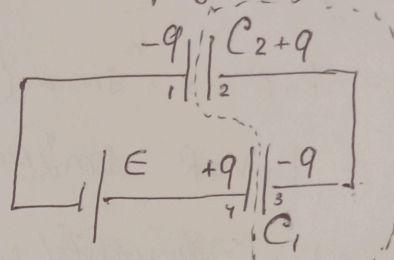 -q C₂ +q
1 2
E +q -q
4 3
C₁